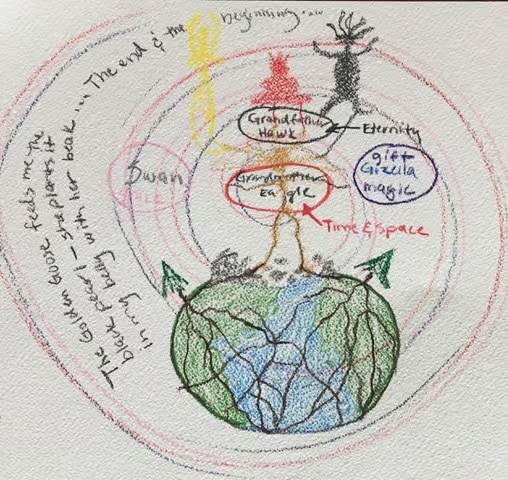 The Golden Goose feeds me the
black pearl – she plants it
in my belly with her beak ... The end & the
beginning ....
Grandfather
Hawk
Eternity
Swan
Grandmother
Eagle
gift
Gizella
magic
Time & Space